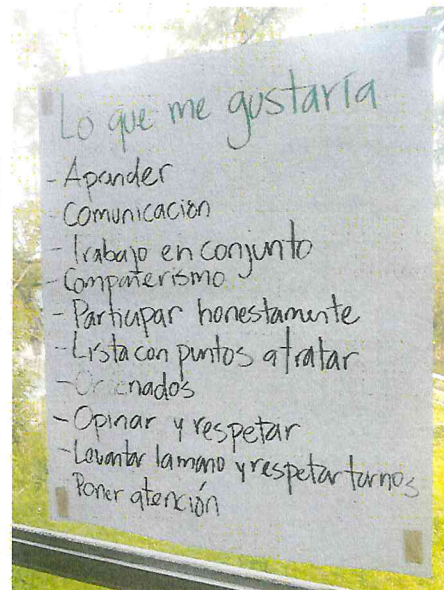 Lo que me gustaría
- Aprender
- Comunicación
- Trabajo en conjunto
- Compañerismo
- Participar honestamente
- Lista con puntos a tratar
- Ordenados
- Opinar y respetar
- Levantar la mano y respetar turnos
- Poner atención